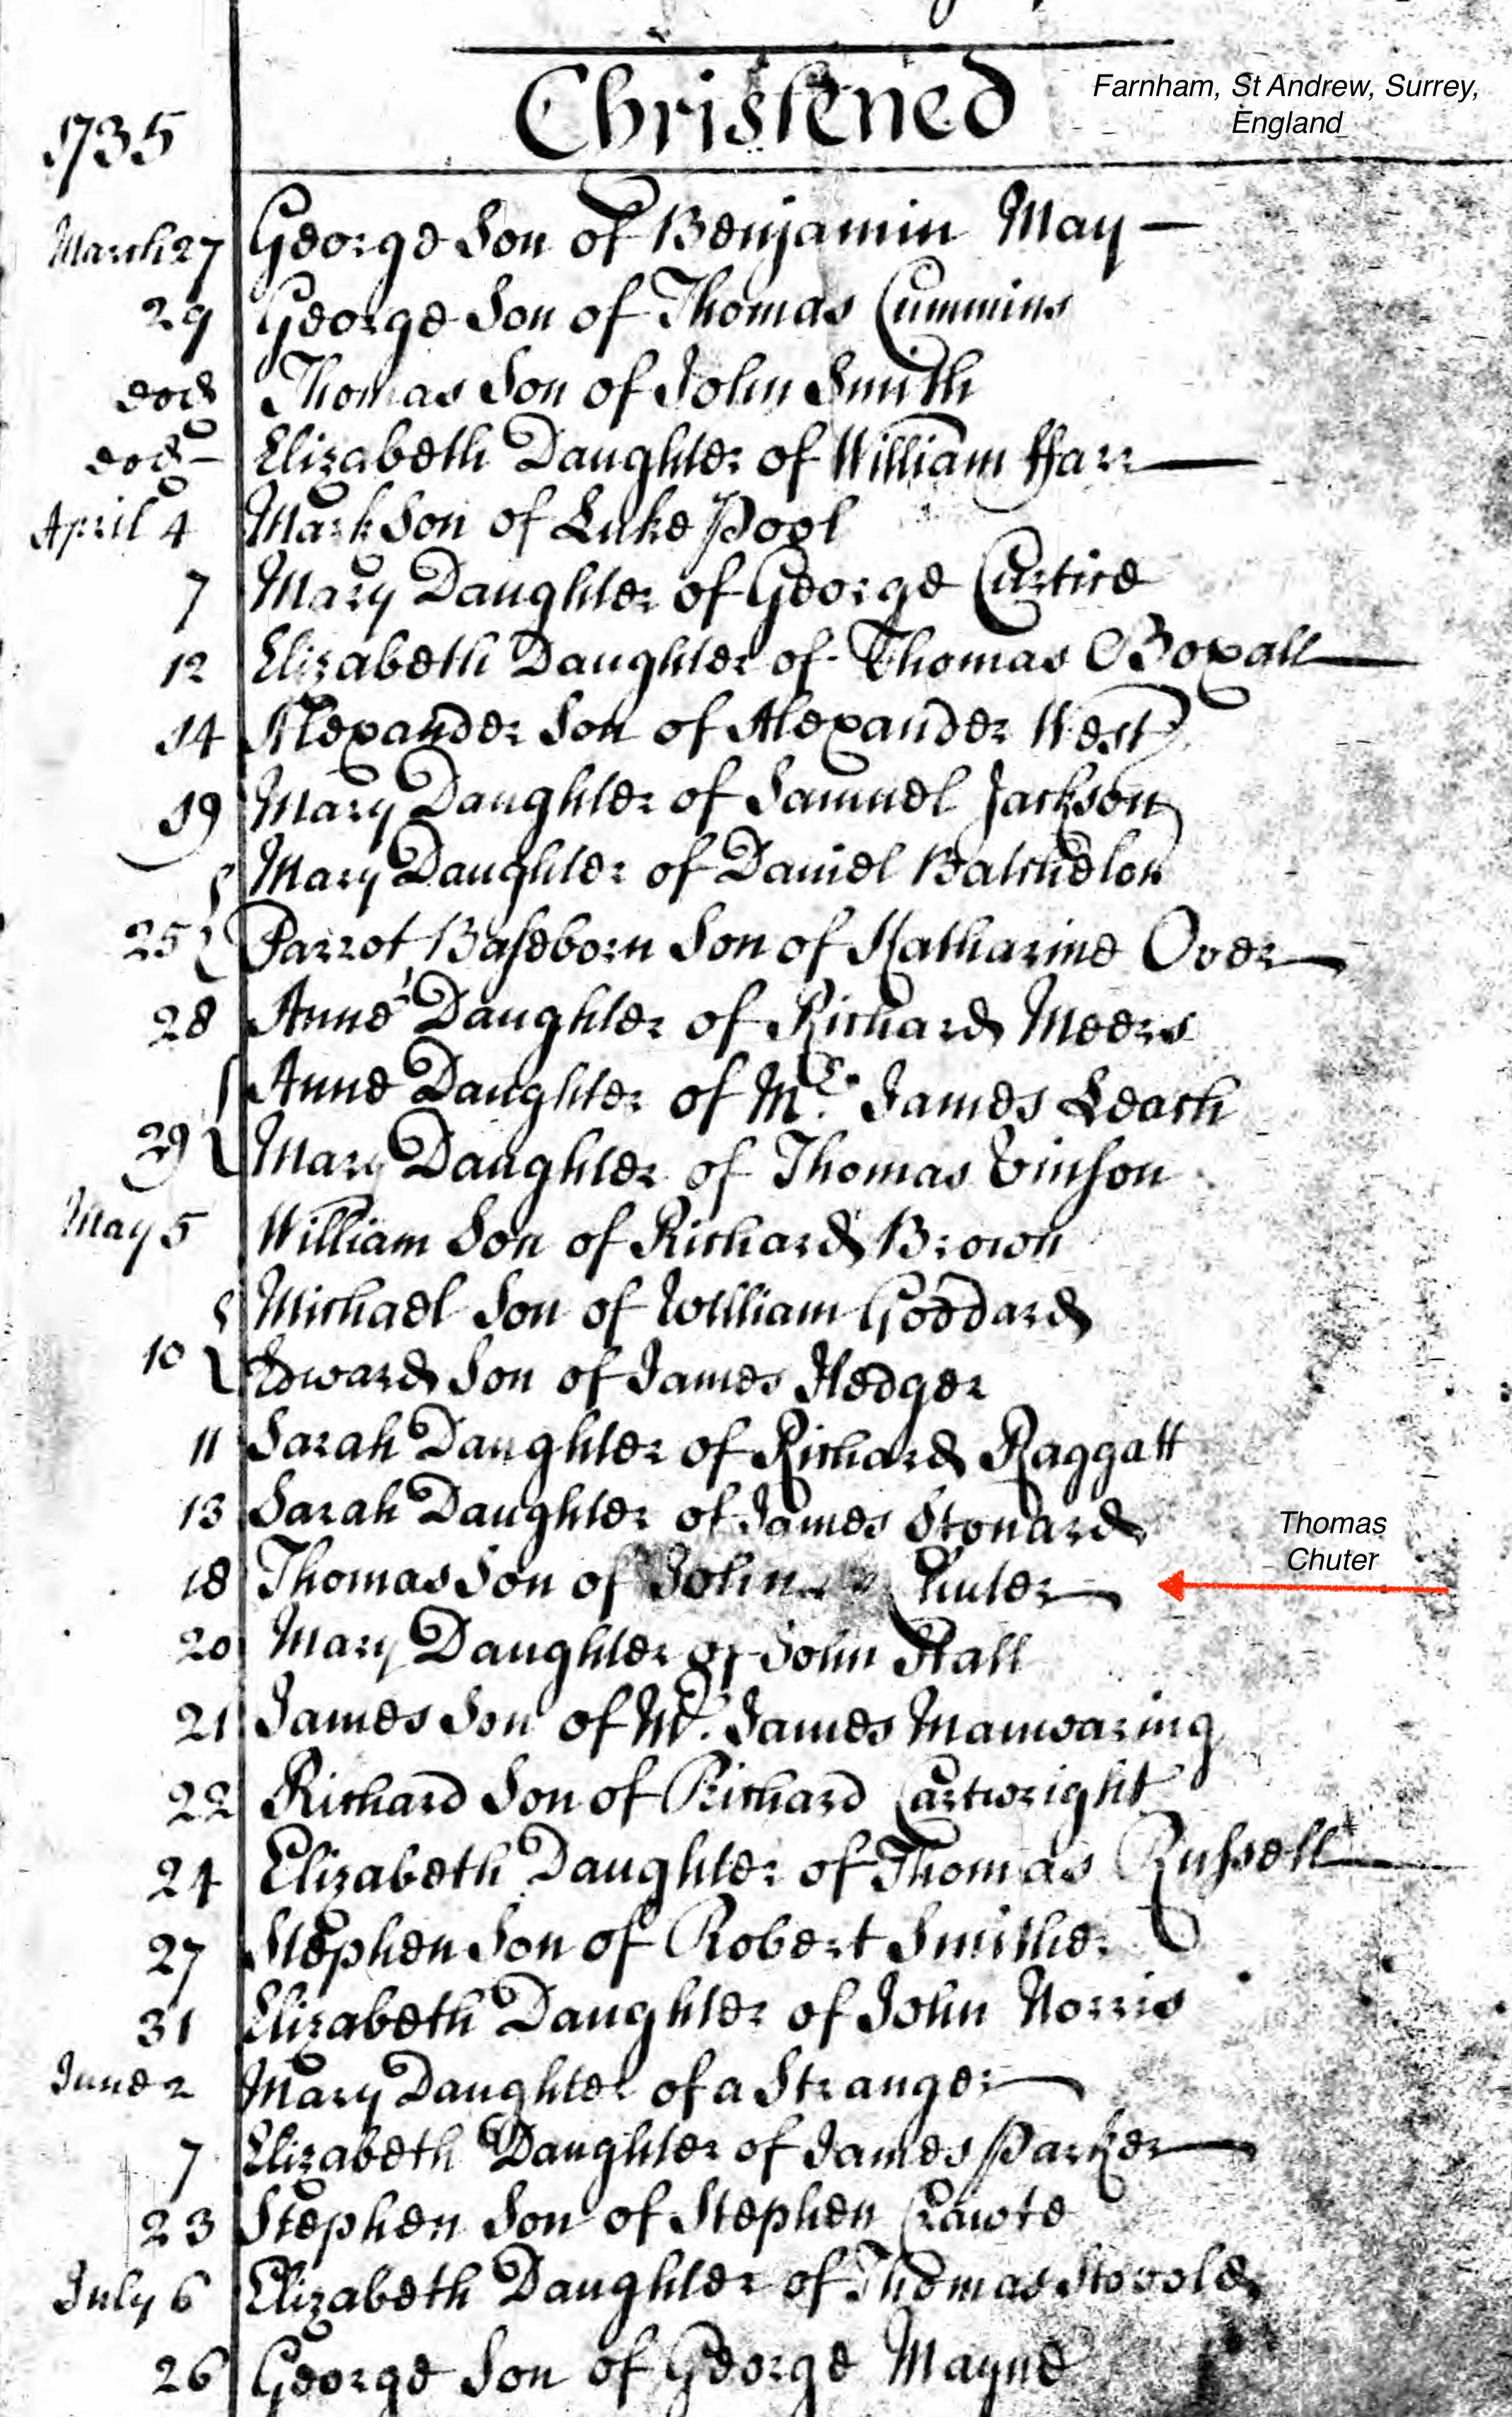 Christened
Farnham, St Andrew, Surrey,
England
1735
March 27 George Son of Benjamin May —
29 George Son of Thomas Cummins
eod Thomas Son of John Smith
eod — Elizabeth Daughter of William Harr —
April 4 Mark Son of Luke Pool
7 Mary Daughter of George Curtice
12 Elizabeth Daughter of Thomas Boxall —
14 Alexander Son of Alexander West
19 Mary Daughter of Samuel Jackson
Mary Daughter of Daniel Batchelor
25 Parrot Baseborn Son of Katharine Over —
28 Anne Daughter of Richard Meers
Anne Daughter of Mr. James Leach
29 Mary Daughter of Thomas Vinson
May 5 William Son of Richard Brown
Michael Son of William Goddard
10 Edward Son of James Hedger
11 Sarah Daughter of Richard Raggatt
13 Sarah Daughter of James Stonard
18 Thomas Son of John Chuter —
Thomas
Chuter
20 Mary Daughter of John Hall
21 James Son of Mr. James Manwaring
22 Richard Son of Richard Cartwright
24 Elizabeth Daughter of Thomas Russell —
27 Stephen Son of Robert Smither
31 Elizabeth Daughter of John Norris
June 2 Mary Daughter of a Stranger —
7 Elizabeth Daughter of James Parker —
23 Stephen Son of Stephen Crawte
July 6 Elizabeth Daughter of Thomas Stovold
26 George Son of George Mayne